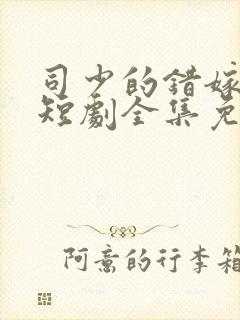 司少的错嫁
短劇全集免
阿意的行李箱